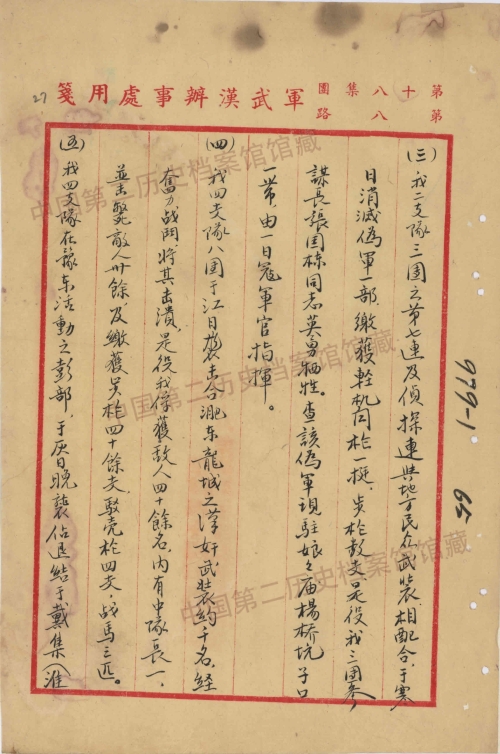 第十八集團軍武漢辦事處用箋
第八路
27
(三)我二支隊三團之第七連及偵探連與地方民众武装相配合,于寒
日消滅偽軍一部,缴獲輊机関枪一挺,步枪数支是役我三團参
謀長張國栋同志英勇牺牲。查該偽軍現駐娘々庙楊桥坑子口
一带,由一日寇軍官指揮。
(四)我四支隊八團于江日襲击合淝东龍城之漢奸武装约千名,經
奮力战鬥,將其击潰,是役我俘獲敌人四十餘名,内有中隊長一,
並击毙敌人卅餘,及缴獲步枪四十餘支,駁壳枪四支,战馬三匹。
(五)我四支隊在豫东活動之彭部,于庚日晚襲佔退結于戴集(淮
979-1
65
中国第二历史档案馆馆藏
中国第二历史档案馆馆藏
中国第二历史档案馆馆藏